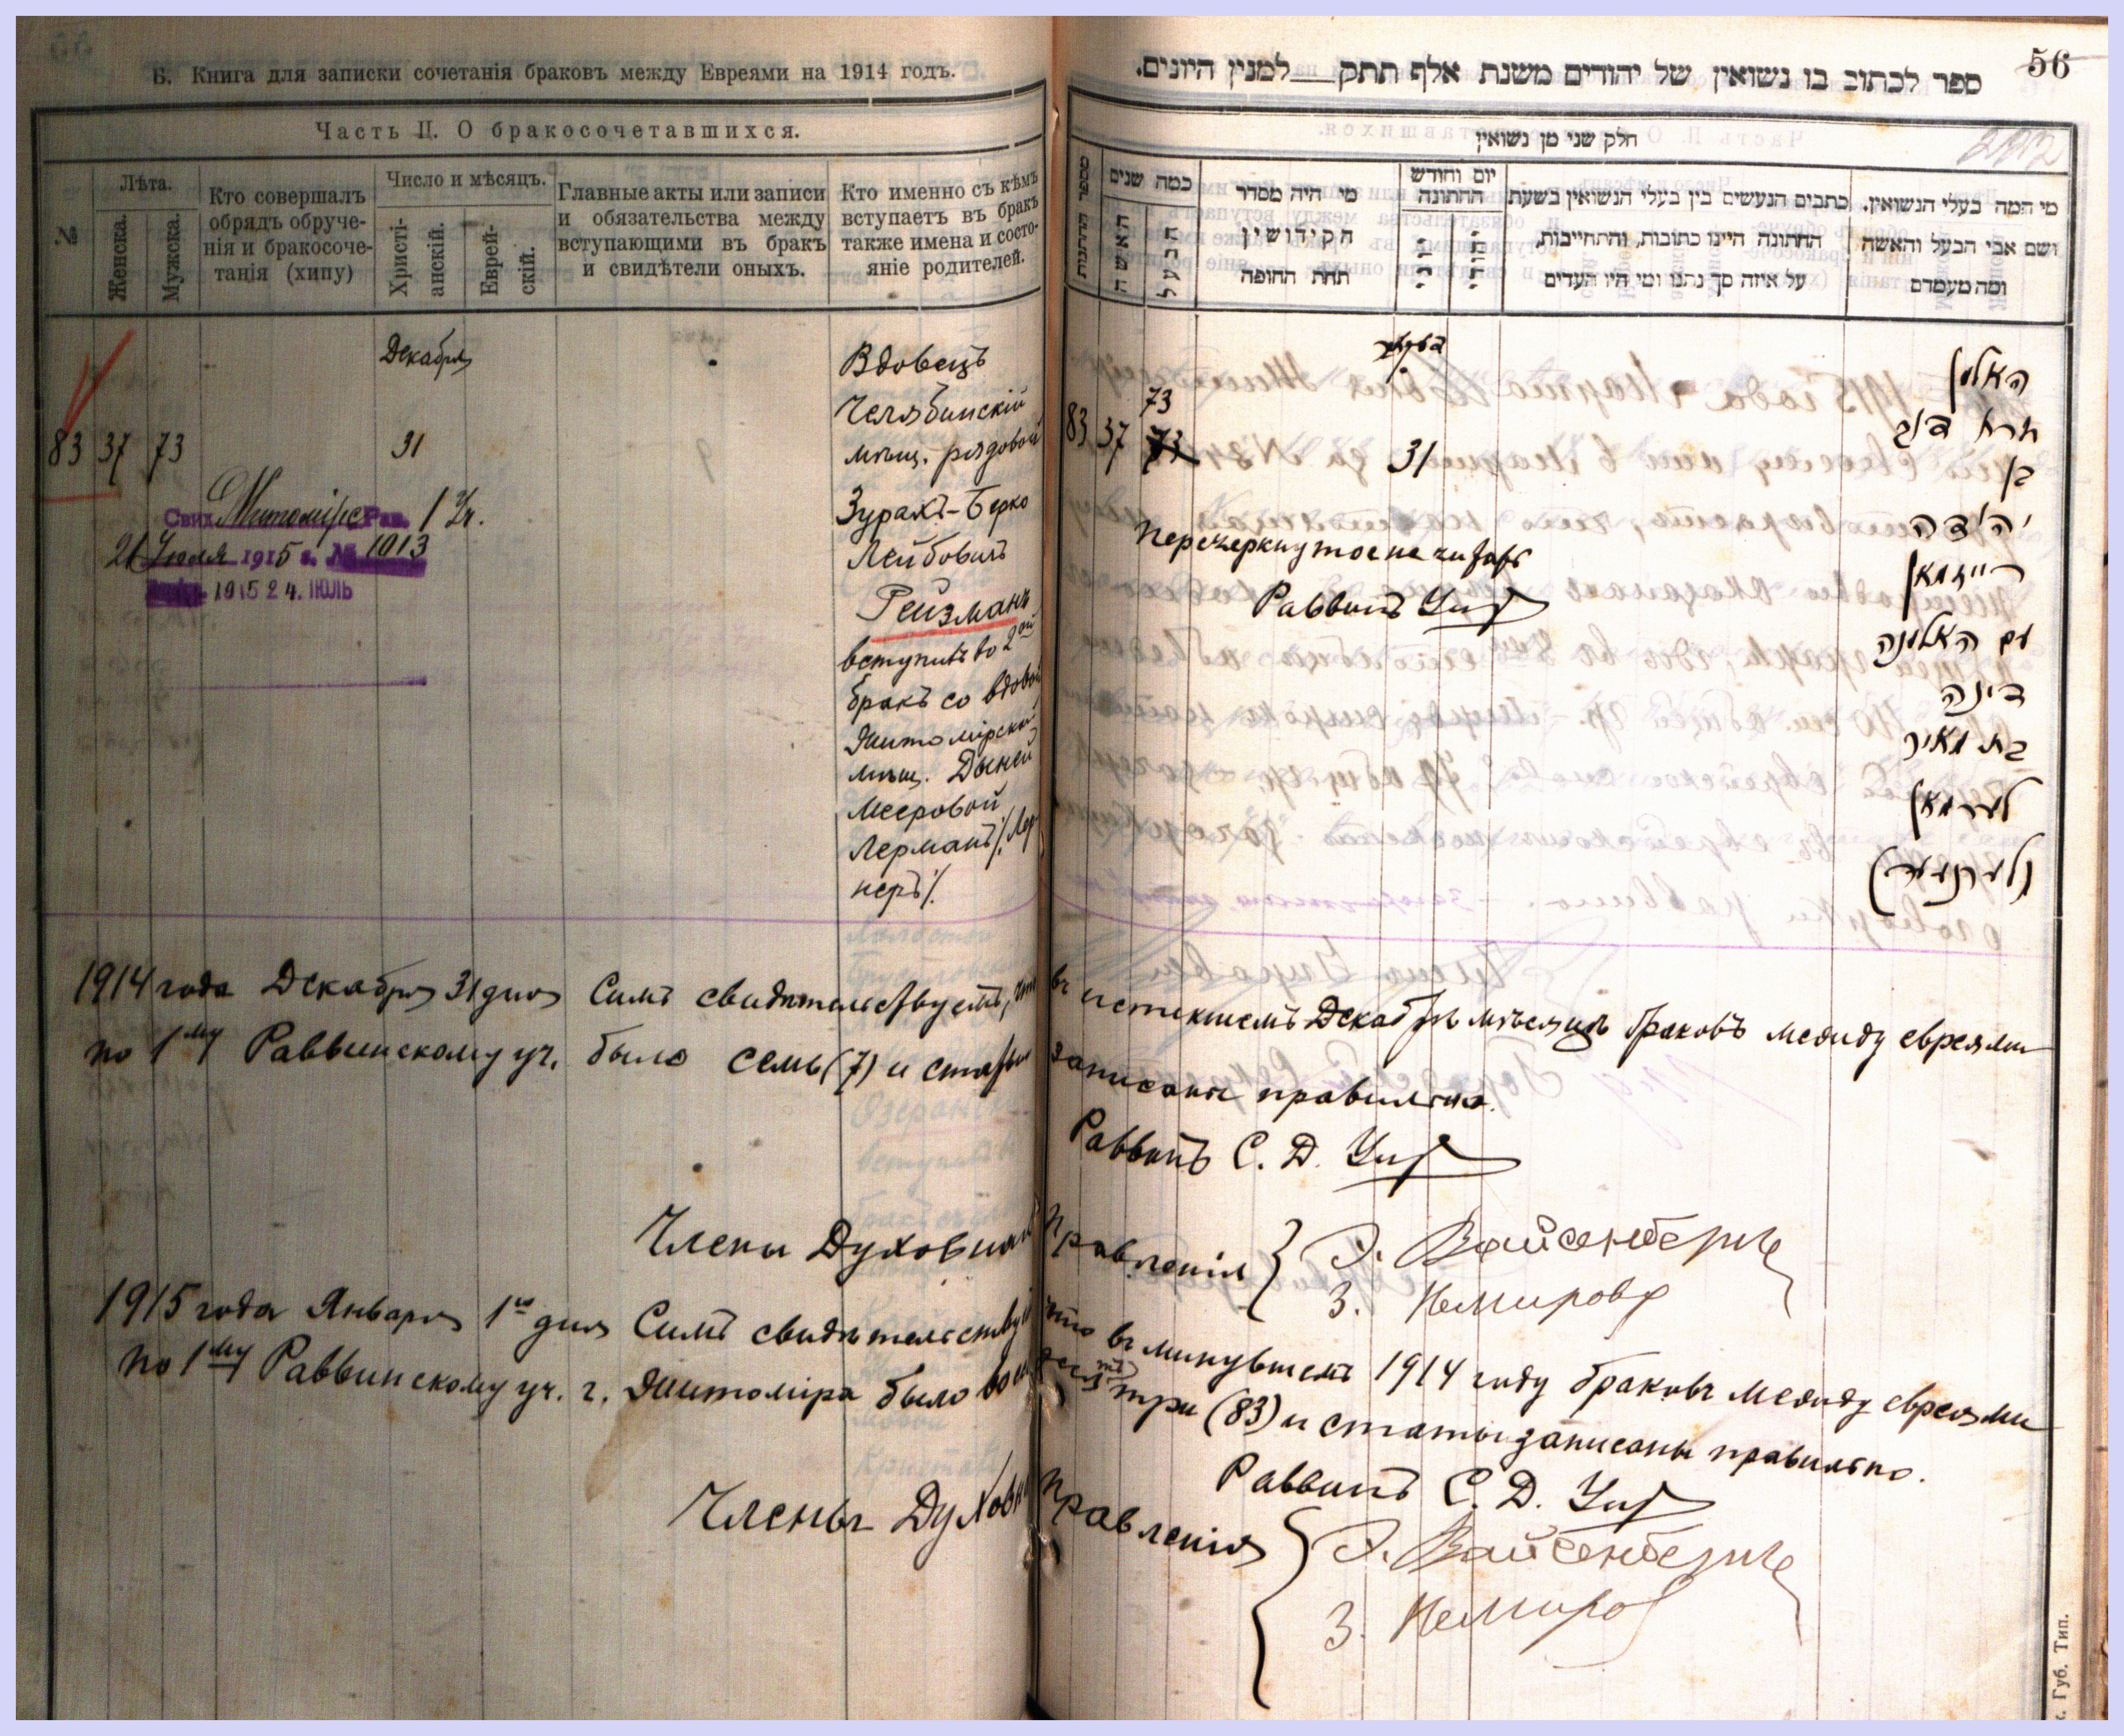 Б. Книга для записки сочетанія браковъ между Евреями на 1914 годъ.
Часть II. О бракосочетавшихся.
№
Лѣта.
Женска.
Мужска.
Кто совершалъ
обрядъ обруче-
нія и бракосоче-
танія (хипу)
Число и мѣсяцъ.
Христі-
анскій.
Еврей-
скій.
Главные акты или записи
и обязательства между
вступающими въ бракъ
и свидѣтели оныхъ.
Кто именно съ кѣмъ
вступаетъ въ бракъ
также имена и состо-
яніе родителей.
Декабря
83 37 73 31
Вдовецъ
Челябинскій
мѣщ. рядовой
Зурахъ-Берко
Лейбовичъ
Рейзманъ
вступилъ во 2ой
бракъ со вдовой
Житомірской
мѣщ. Дыней
Мееровой
Лерманъ /Лер
неръ/.
Свид. Житомірс Рав. 1 Уч.
21 Июля 1915 г. № 1013
1915 24. ІЮЛЬ
56
ספר לכתוב בו נשואין של יהודים משנת אלף תתק למנין היונים.
חלק שני מן נשואין
מספר החתונות
כמה שנים
האשה
הבעל
מי היה מסדר
הקידושין
תחת החופה
יום וחודש
החתונה
כתבים הנעשים בין בעלי הנשואין בשעת
החתונה היינו כתובות, והתחייבות,
על איזה סך נתנו ומי היו העדים
מי המה בעלי הנשואין.
ושם אבי הבעל והאשה
ומה מעמדם
73
83 37 73 31
האלמן
בן
יהודה
רייזמאן
עם האלמנה
דינה
בת מאיר
לערמאן
(לערנער)
Перечеркнутое не читать
Раввинъ
1914 года Декабря 31 дня Симъ свидѣтельствуемъ, что въ истекшемъ Декабрѣ мѣсяцѣ браковъ между евреями
по 1му Раввинскому уч. было семь (7) и статьи записаны правильно.
Раввинъ С. Д.
Члены Духовнаго Правленія } Э. Вайсенбергъ
З. Немировъ
1915 года Января 1го дня Симъ свидѣтельствуемъ что въ минувшемъ 1914 году браковъ между евреями
по 1му Раввинскому уч. г. Житоміра было восемьдесятъ три (83) и статьи записаны правильно.
Раввинъ С. Д.
Члены Духовнаго Правленія } Э. Вайсенбергъ
З. Немиров
Губ. Тип.